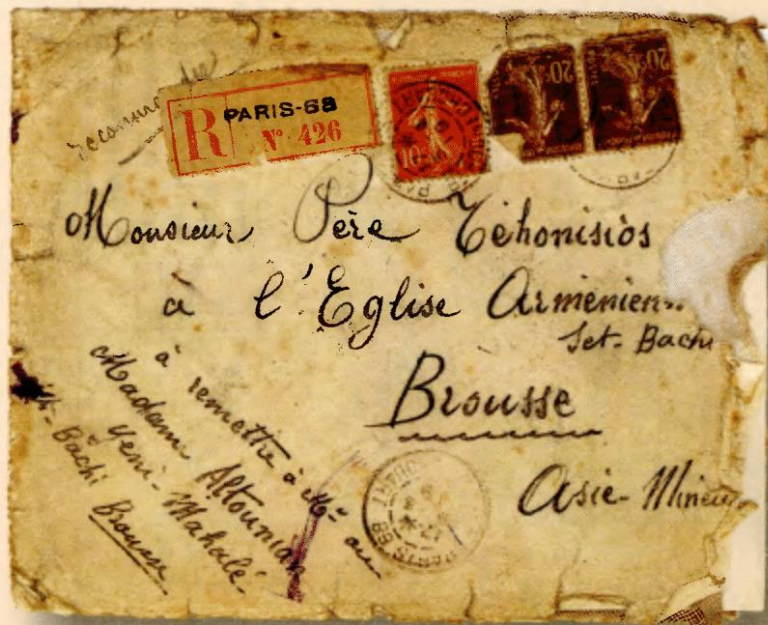 recommandée
R PARIS-68
N° 426
10
20c
20c
Monsieur Père Téhonisiòs
à l'Eglise Armenien
Set-Bachi
Brousse
Asie-Mineu
à remettre à Mr ou
Madame Altounian
Yeni-Mahalé
Set-Bachi Brousse
PARIS 68